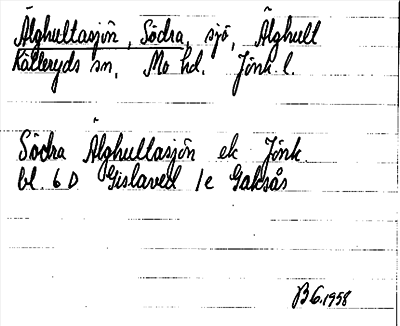 Älghultasjön, Södra, sjö, Älghult
Källeryds sn, Mo hd. Jönk. l.
Södra Älghultasjön ek Jönk.
bl. 6 D Gislaved 1e Gaksås
B 6.1958